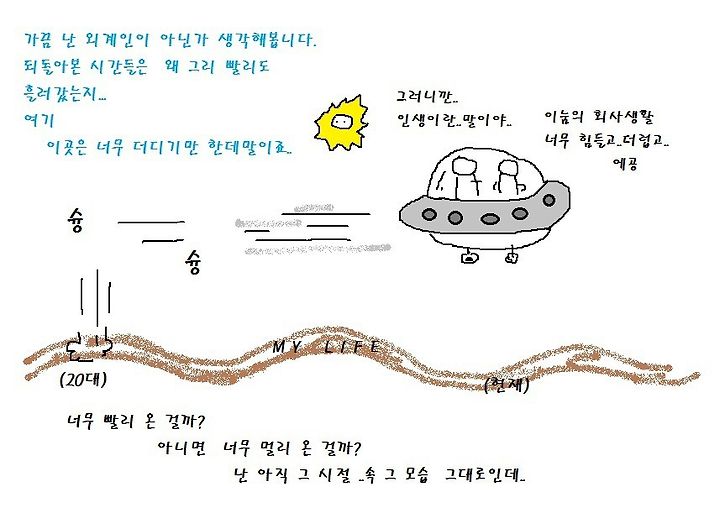 가끔 난 외계인이 아닌가 생각해봅니다.
되돌아본 시간들은 왜 그리 빨리도
흘러갔는지...
여기
이곳은 너무 더디기만 한데말이죠..
그러니깐..
인생이란..말이야..
이늠의 회사생활
너무 힘들고..더럽고..
에공
슝
슝
MY LIFE
(20대)
(현재)
너무 빨리 온 걸까?
아니면 너무 멀리 온 걸까?
난 아직 그 시절 ..속 그 모습 그대로인데..